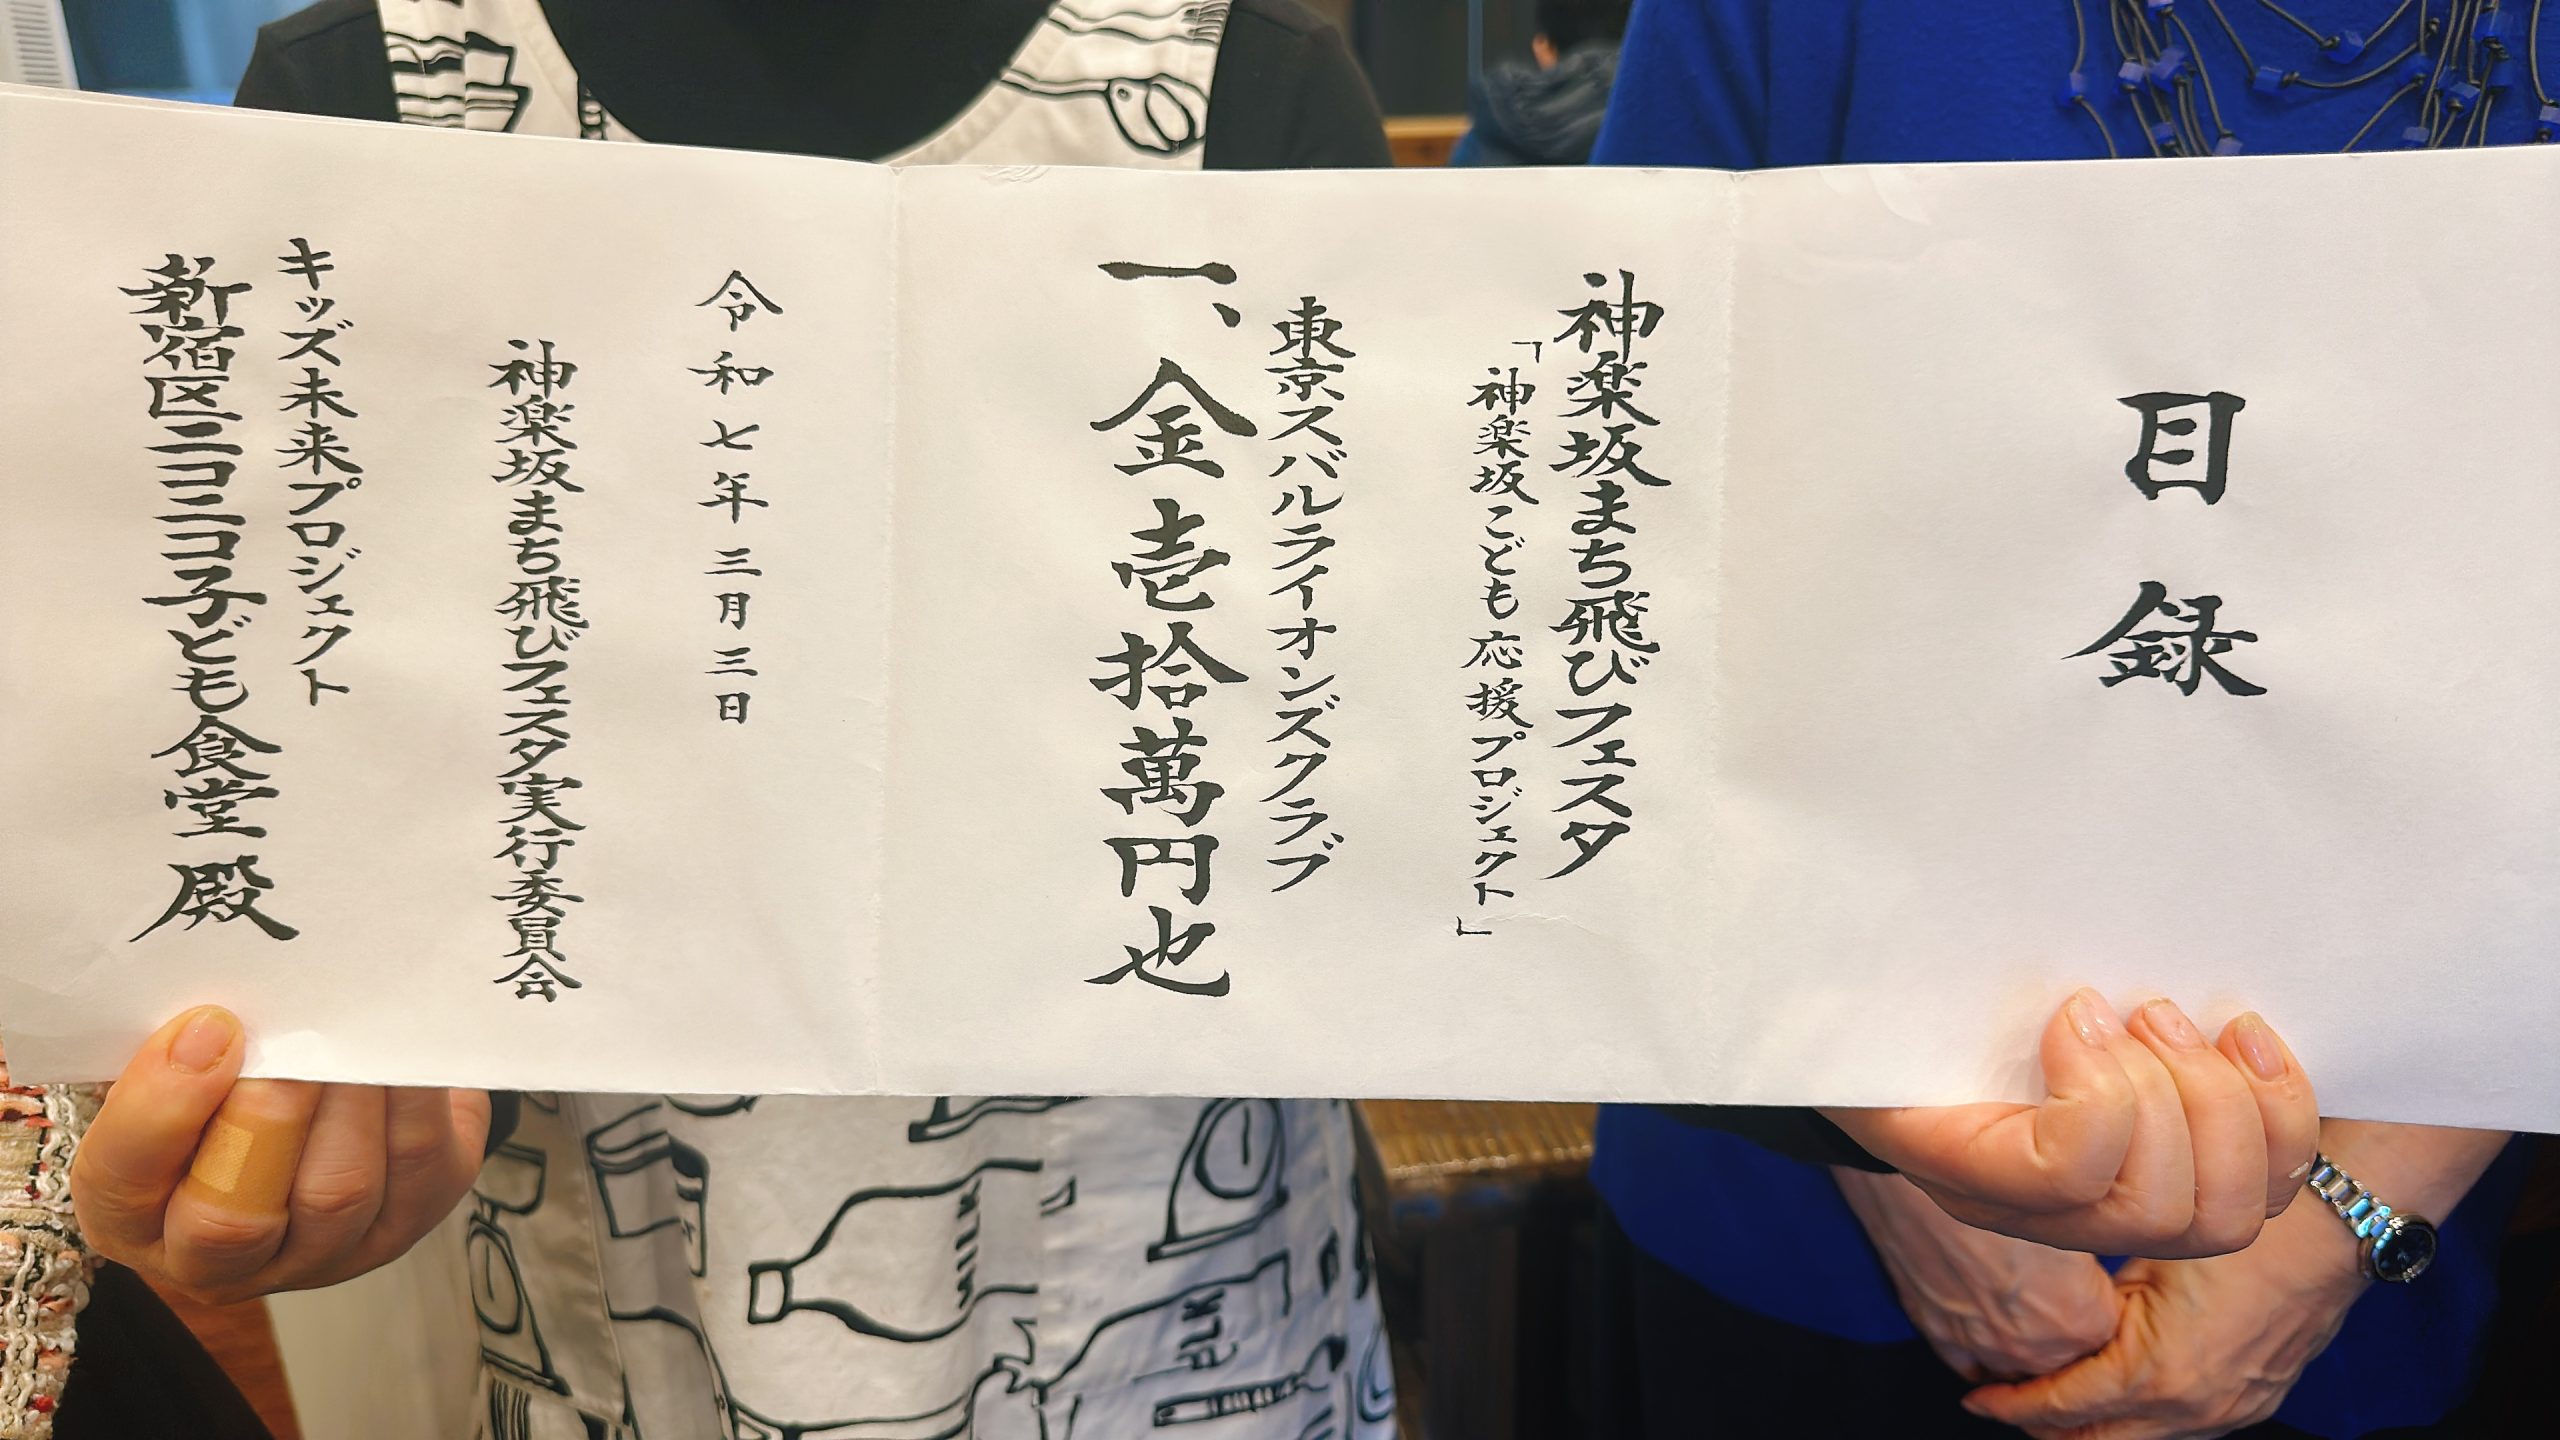 目録
神楽坂まち飛びフェスタ
「神楽坂こども応援プロジェクト」
東京スバルライオンズクラブ
一、金壱拾萬円也
令和七年三月三日
神楽坂まち飛びフェスタ実行委員会
キッズ未来プロジェクト
新宿区ニコニコ子ども食堂 殿
MILK